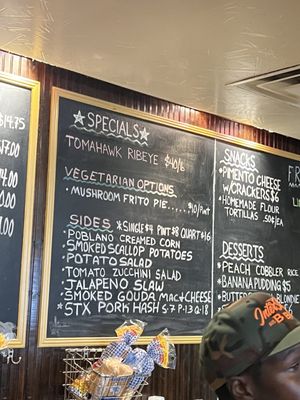 $14.75
SPECIALS
TOMAHAWK RIBEYE $40/lb
VEGETARIAN OPTIONS
MUSHROOM FRITO PIE..... $10/PINT
SIDES *SINGLE $4 PINT $8 QUART $16
POBLANO CREAMED CORN
SMOKED SCALLOP POTATOES
POTATO SALAD
TOMATO ZUCCHINI SALAD
JALAPENO SLAW
SMOKED GOUDA MAC & CHEESE
STX PORK HASH S:7 P:13 Q:18
SNACKS
PIMENTO CHEESE
W/CRACKERS $6
HOMEMADE FLOUR
TORTILLAS .50¢/EA
DESSERTS
PEACH COBBLER RICE
BANANA PUDDING $5
BLONDIE